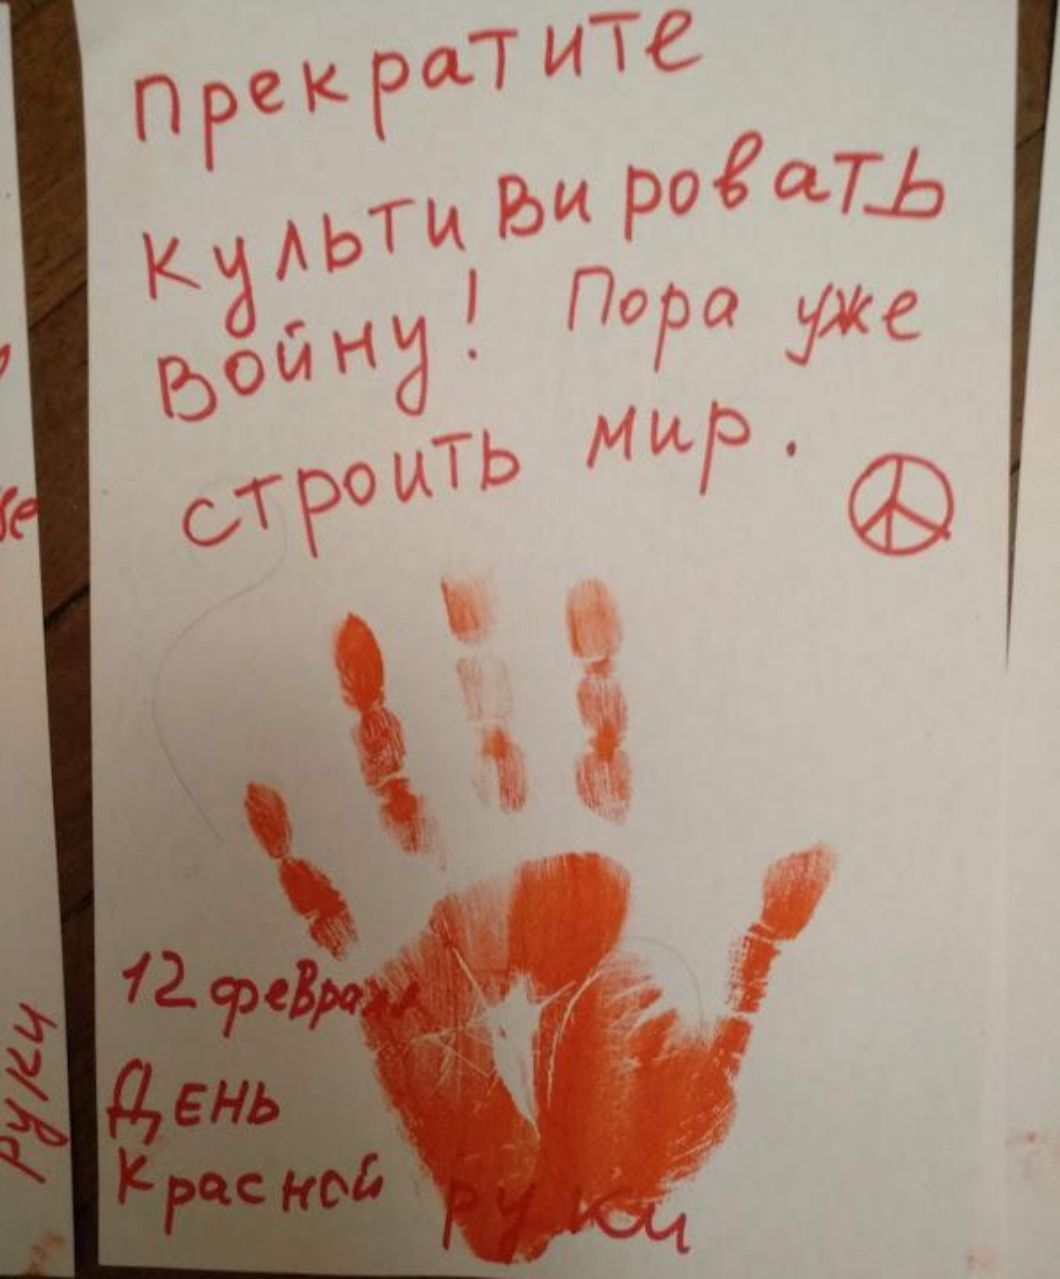 Прекратите
Культивировать
Войну! Пора уже
строить мир.
12 февраля
День
Красной руки
руки